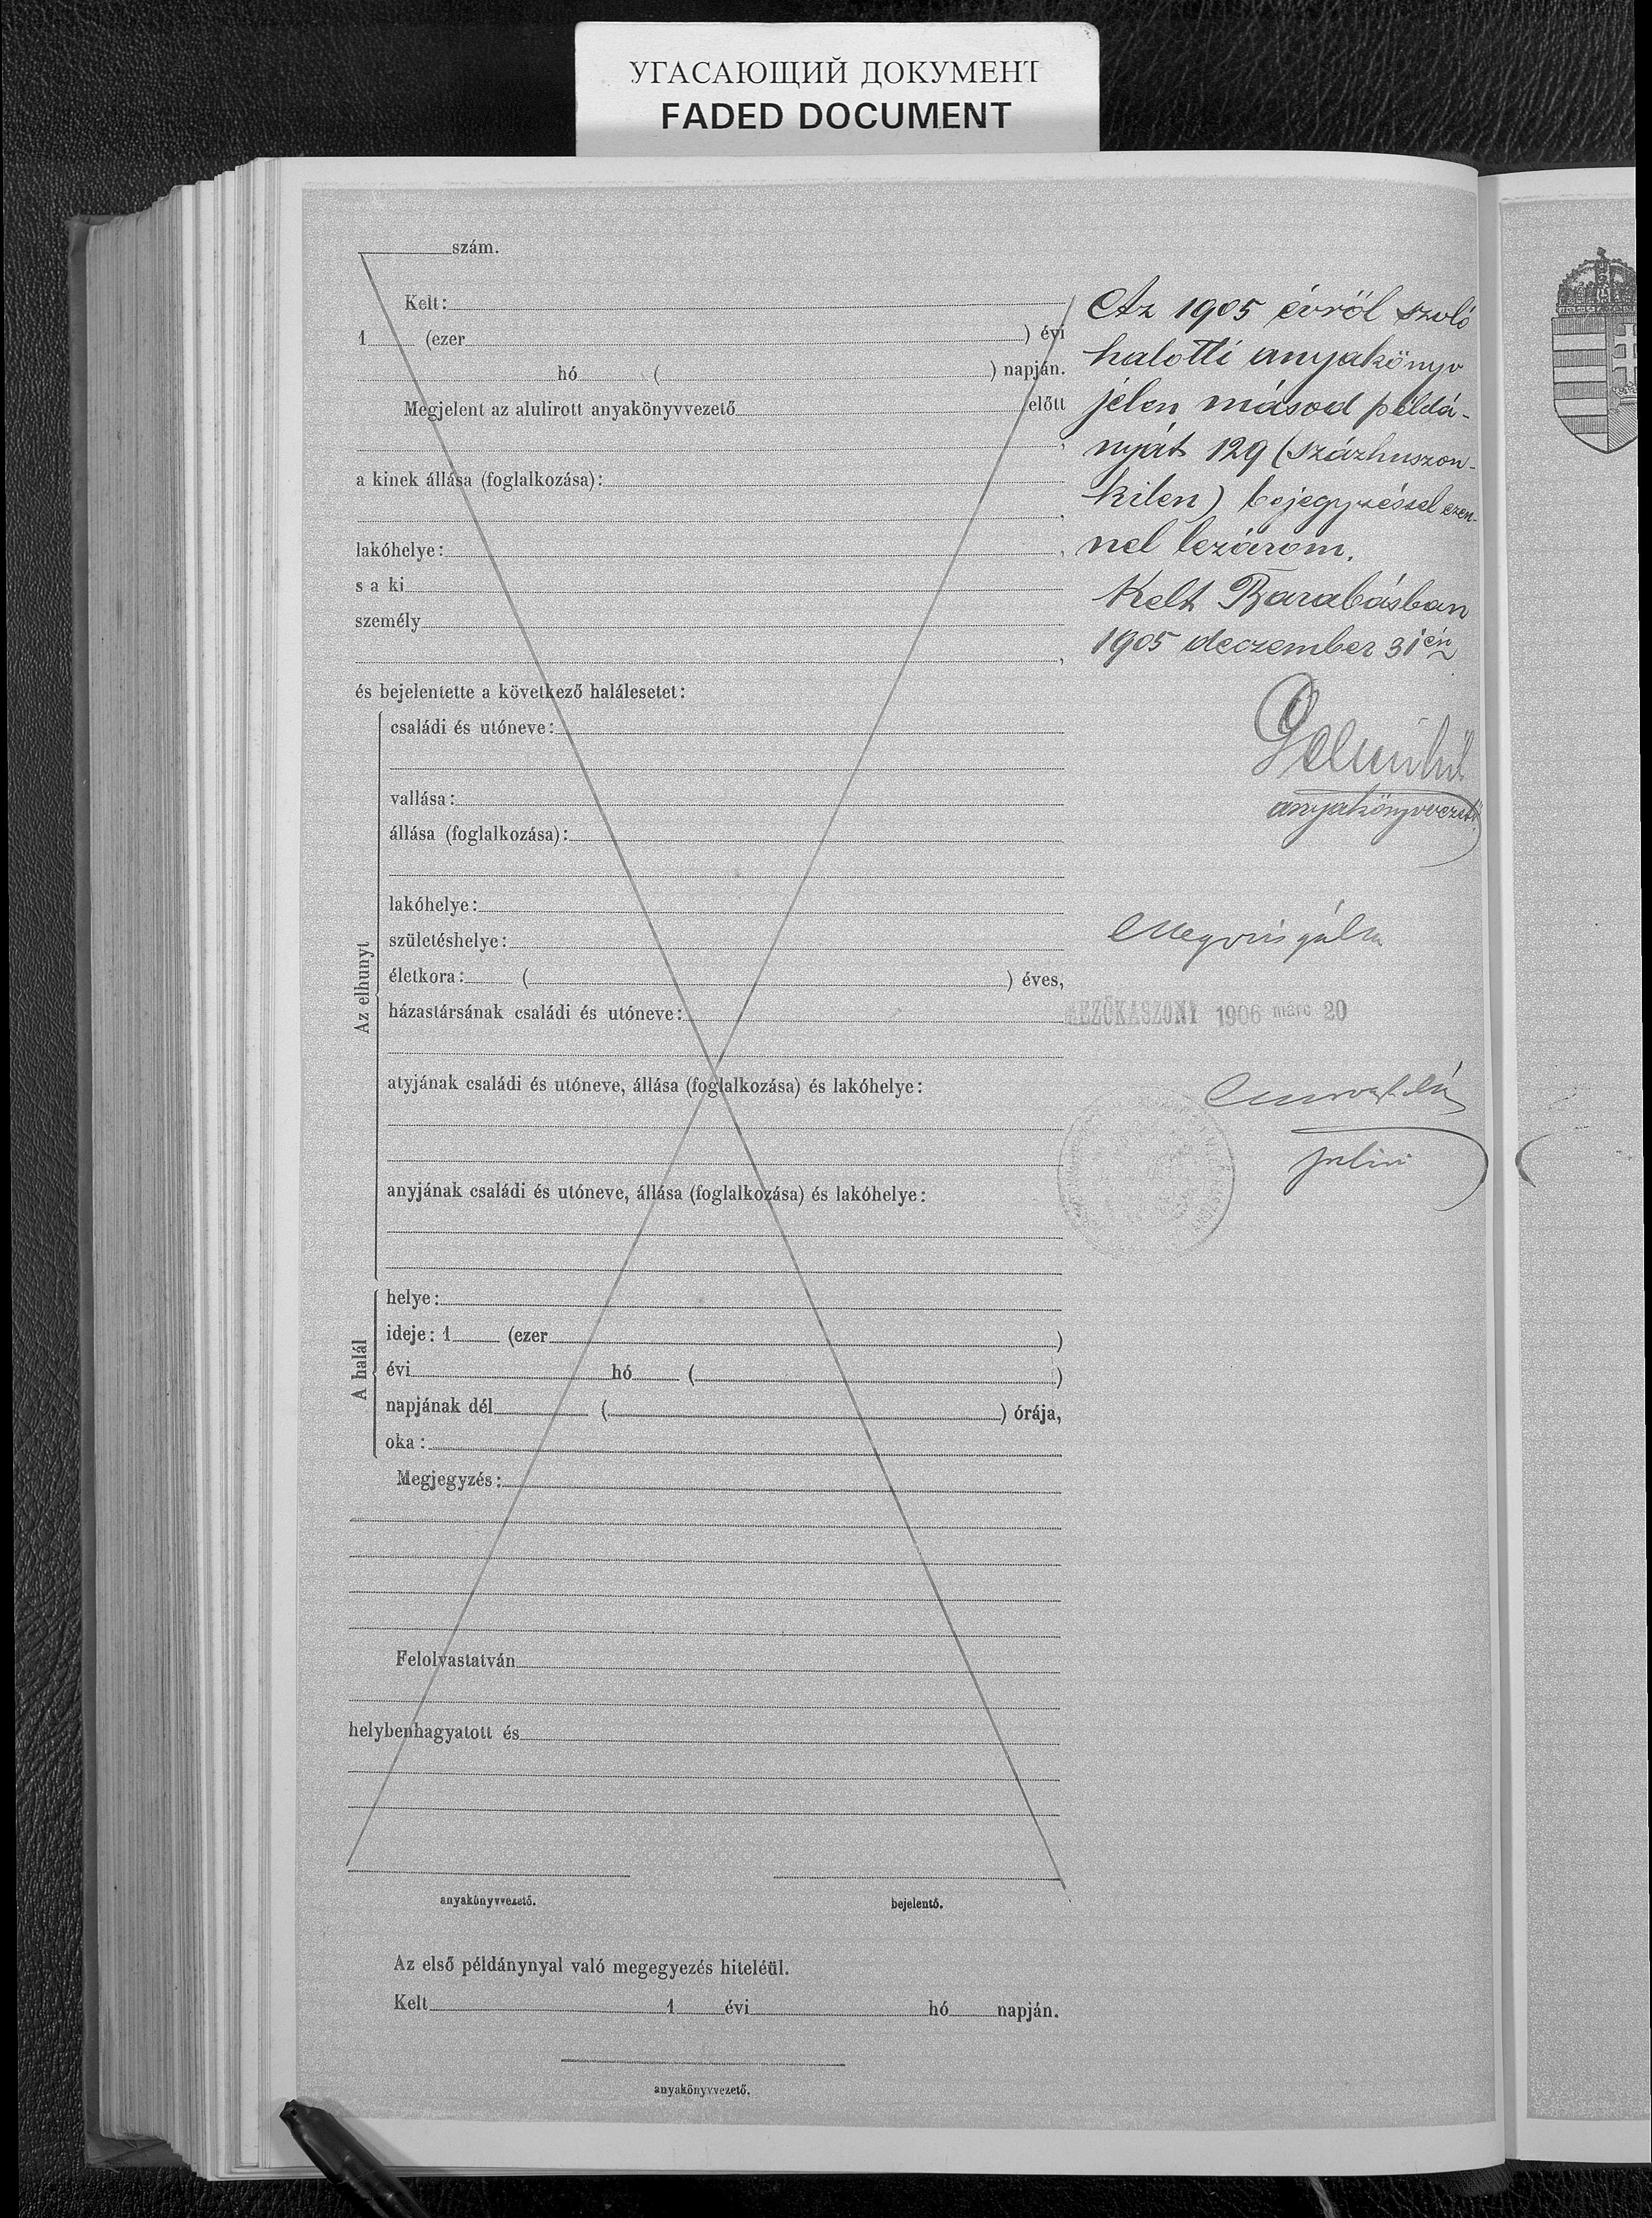 УГАСАЮЩИЙ ДОКУМЕНТ
FADED DOCUMENT
szám.
Kelt:
1 (ezer ) évi
hó ( ) napján.
Megjelent az alulirott anyakönyvvezető előtt
,
a kinek állása (foglalkozása):
,
lakóhelye: ,
s a ki
személy
,
és bejelentette a következő halálesetet:
Az elhunyt
családi és utóneve:
vallása:
állása (foglalkozása):
lakóhelye:
születéshelye:
életkora: ( ) éves,
házastársának családi és utóneve:
atyjának családi és utóneve, állása (foglalkozása) és lakóhelye:
anyjának családi és utóneve, állása (foglalkozása) és lakóhelye:
A halál
helye:
ideje: 1 (ezer )
évi hó ( )
napjának dél ( ) órája,
oka:
Megjegyzés:
Felolvastatván
helybenhagyatott és
anyakönyvvezető. bejelentő.
Az első példánynyal való megegyezés hiteléül.
Kelt 1 évi hó napján.
anyakönyvvezető.
Az 1905 évről szóló
halotti anyakönyv
jelen másod példá-
nyát 129 (százhuszon-
kilen) bejegyzéssel ezen-
nel lezárom.
Kelt Barabásban
1905 deczember 31én
anyakönyvvezető
MEZŐKASZONY 1906 marc 20